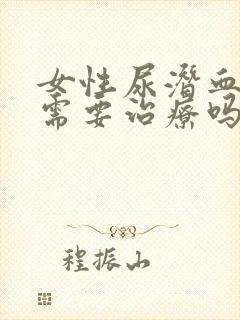 女性尿潜血
需要治疗吗
程振山